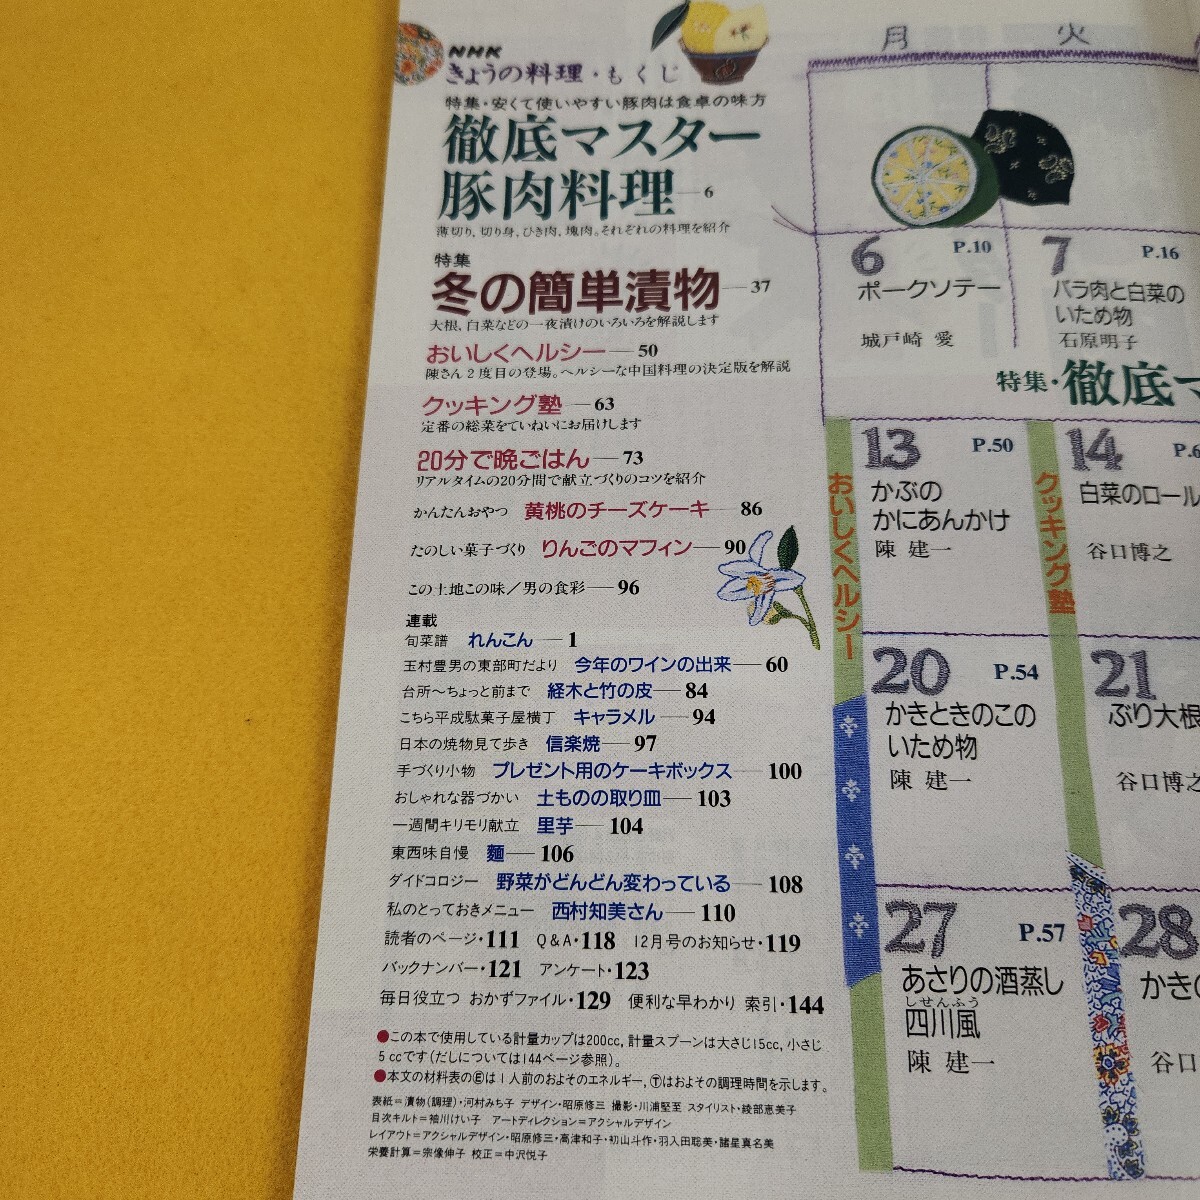 NHK
きょうの料理・もくじ
特集・安くて使いやすい豚肉は食卓の味方
徹底マスター
豚肉料理—6
薄切り、切り身、ひき肉、塊肉。それぞれの料理を紹介
特集
冬の簡単漬物—37
大根、白菜などの一夜漬けのいろいろを解説します
おいしくヘルシー—50
陳さん2度目の登場。ヘルシーな中国料理の決定版を解説
クッキング塾—63
定番の総菜をていねいにお届けします
20分で晩ごはん—73
リアルタイムの20分間で献立づくりのコツを紹介
かんたんおやつ 黄桃のチーズケーキ—86
たのしい菓子づくり りんごのマフィン—90
この土地この味/男の食彩—96
連載
旬菜譜 れんこん—1
玉村豊男の東部町だより 今年のワインの出来—60
台所〜ちょっと前まで 経木と竹の皮—84
こちら平成駄菓子屋横丁 キャラメル—94
日本の焼物見て歩き 信楽焼—97
手づくり小物 プレゼント用のケーキボックス—100
おしゃれな器づかい 土ものの取り皿—103
一週間キリモリ献立 里芋—104
東西味自慢 麺—106
ダイドコロジー 野菜がどんどん変わっている—108
私のとっておきメニュー 西村知美さん—110
読者のページ・111 Q&A・118 12月号のお知らせ・119
バックナンバー・121 アンケート・123
毎日役立つ おかずファイル・129 便利な早わかり 索引・144
●この本で使用している計量カップは200cc、計量スプーンは大さじ15cc、小さじ
5ccです(だしについては144ページ参照)。
●本文の材料表のⒺは1人前のおよそのエネルギー、Ⓣはおよその調理時間を示します。
表紙=漬物(調理)・河村みち子 デザイン・昭原修三 撮影・川浦堅至 スタイリスト・綾部恵美子
目次キルト=袖川けい子 アートディレクション=アクシャルデザイン
レイアウト=アクシャルデザイン・昭原修三・高津和子・初山斗作・羽入田聡美・諸星真名美
栄養計算=宗像伸子 校正=中沢悦子
月
火
6 P.10
ポークソテー
城戸崎 愛
7 P.16
バラ肉と白菜の
いため物
石原明子
特集・徹底マ
おいしくヘルシー
13 P.50
かぶの
かにあんかけ
陳 建一
クッキング塾
14 P.6
白菜のロール
谷口博之
20 P.54
かきときのこの
いため物
陳 建一
21
ぶり大根
谷口博之
27 P.57
あさりの酒蒸し
しせんふう
四川風
陳 建一
28
かきの
谷口